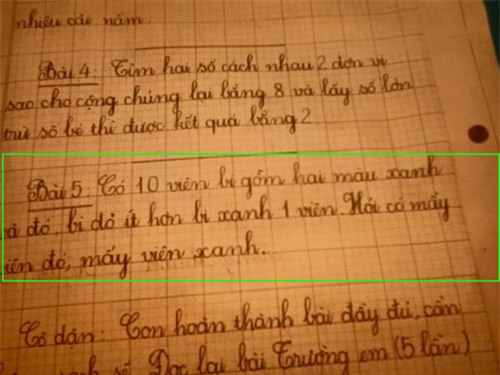 nhiêu cái nấm.
Bài 4: Tìm hai số cách nhau 2 đơn vị
sao cho cộng chúng lại bằng 8 và lấy số lớn
trừ số bé thì được kết quả bằng 2
Bài 5: Có 10 viên bi gồm hai màu xanh
và đỏ, bi đỏ ít hơn bi xanh 1 viên. Hỏi có mấy
viên đỏ, mấy viên xanh.
Cô dặn: Con hoàn thành bài đầy đủ, cẩn
sách số Đọc lại bài Trường em (5 lần)